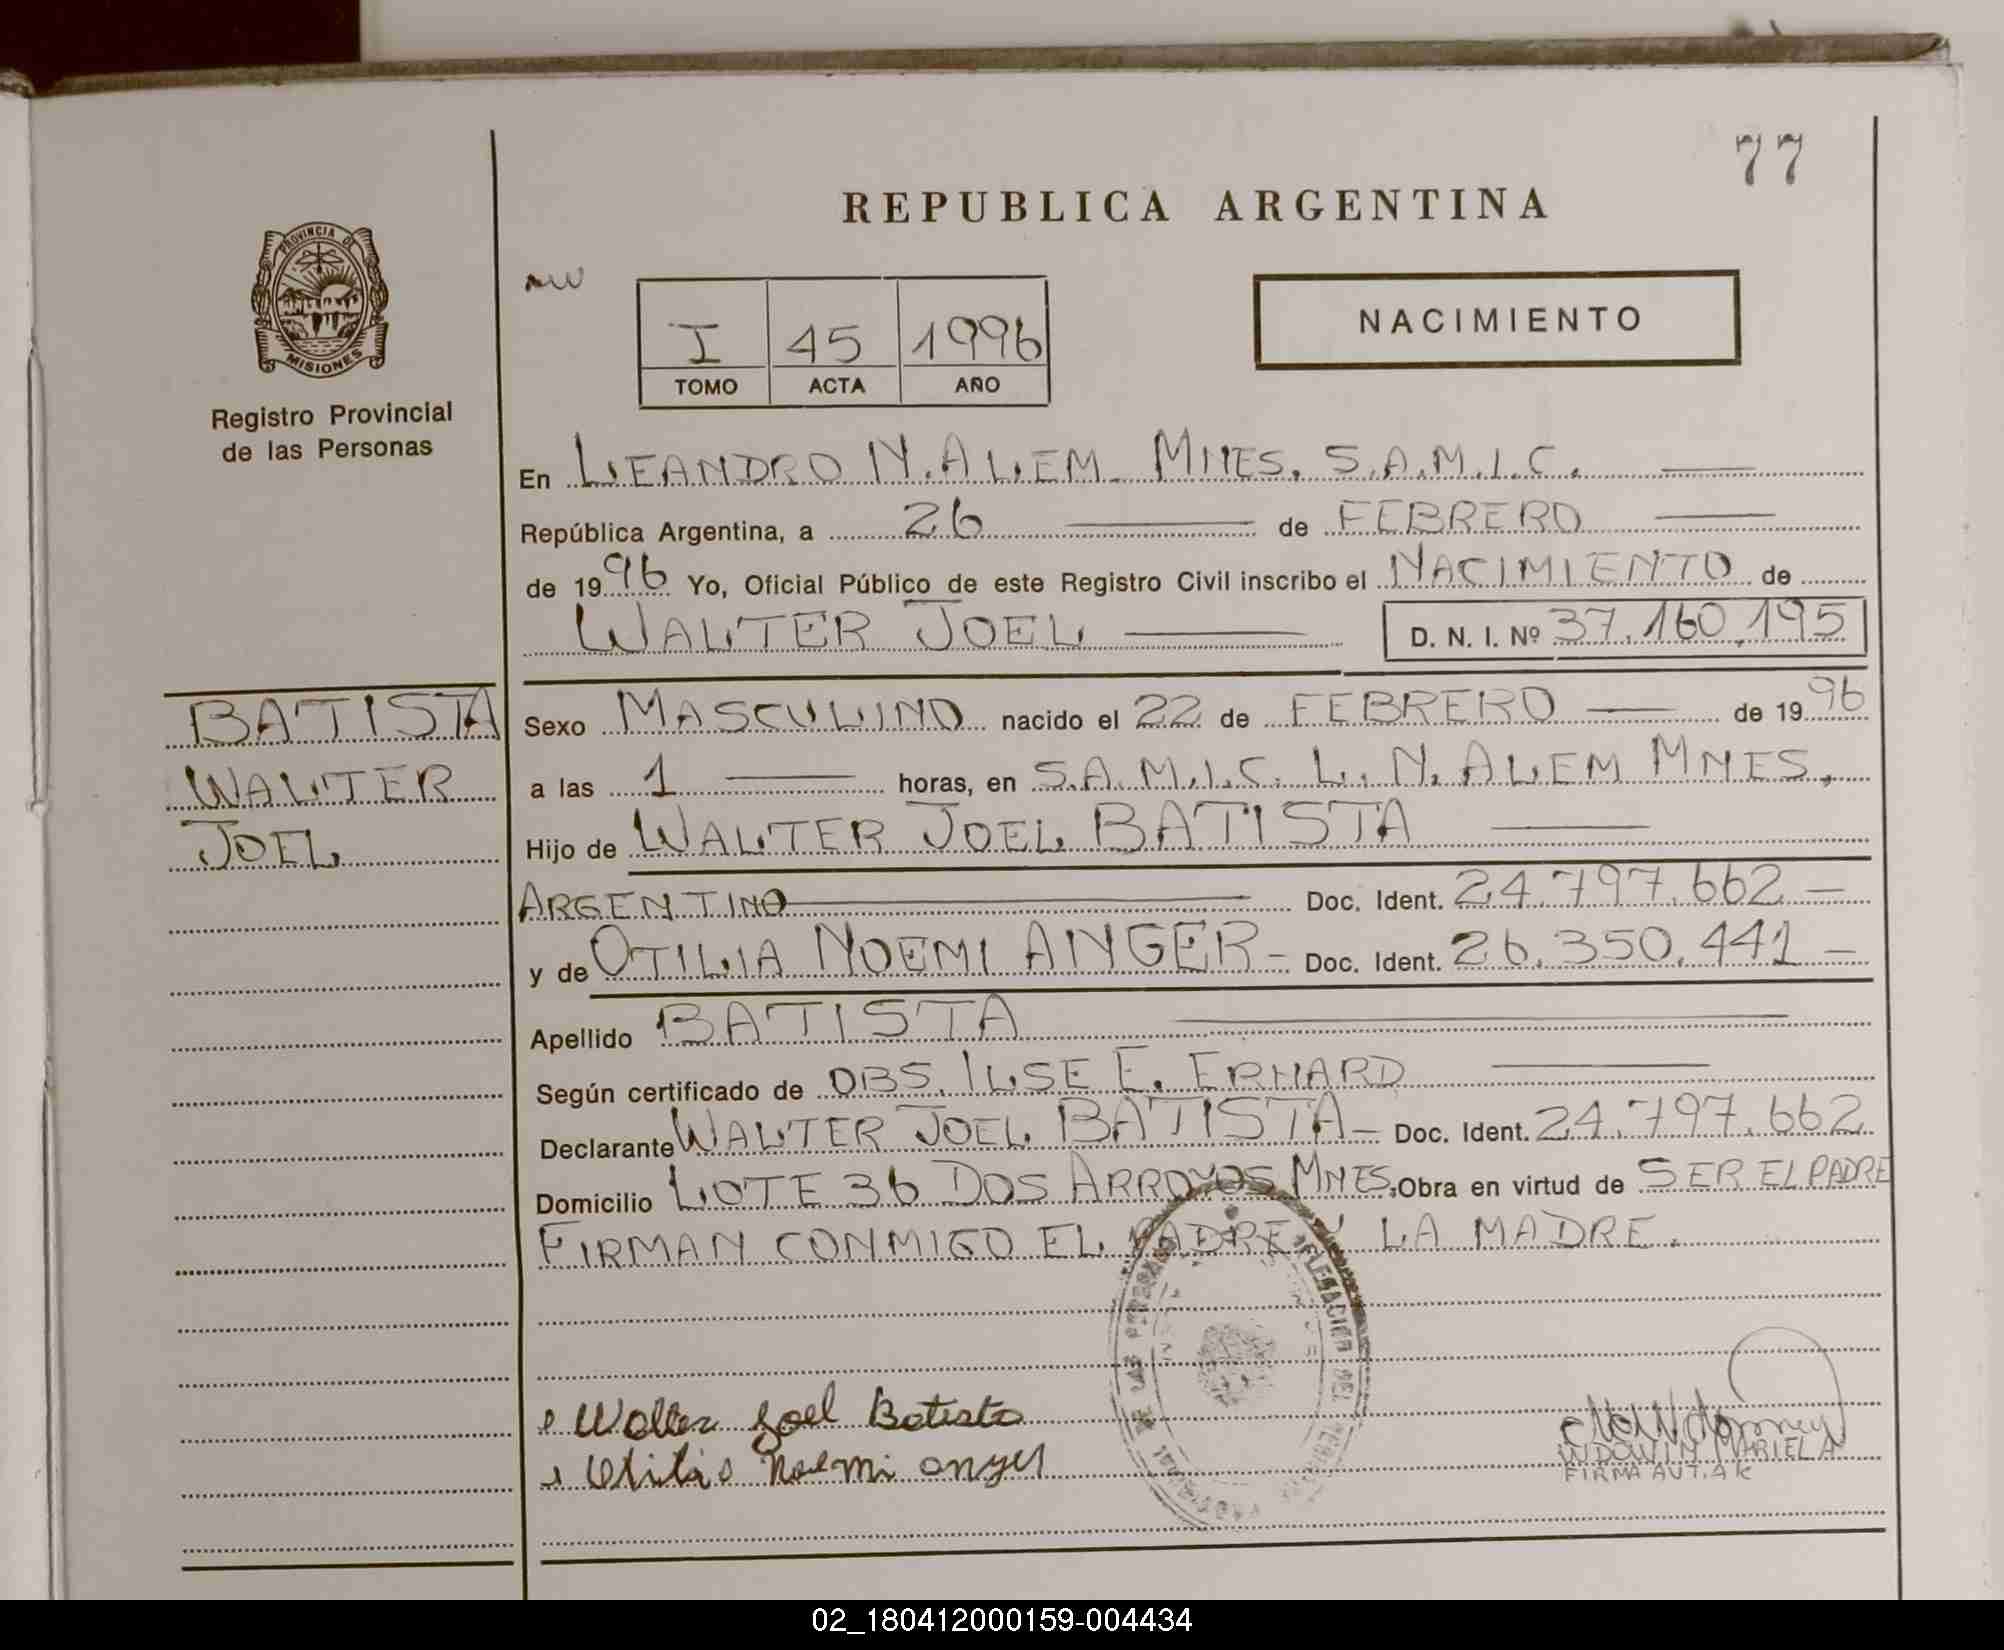 77
REPUBLICA ARGENTINA
PROVINCIA DE
MISIONES
Registro Provincial
de las Personas
I 45 1996
TOMO ACTA AÑO
NACIMIENTO
En LEANDRO N. ALEM MNES. S.A.M.I.C.
República Argentina, a 26 de FEBRERO
de 1996 Yo, Oficial Público de este Registro Civil inscribo el NACIMIENTO de
WALTER JOEL D. N. I. Nº 37.160.195
BATISTA
WALTER
JOEL
Sexo MASCULINO nacido el 22 de FEBRERO de 1996
a las 1 horas, en S.A.M.I.C. L. N. ALEM MNES,
Hijo de WALTER JOEL BATISTA
ARGENTINO Doc. Ident. 24.797.662
y de OTILIA NOEMI ANGER - Doc. Ident. 26.350.441
Apellido BATISTA
Según certificado de OBS. ILSE E. ERHARD
Declarante WALTER JOEL BATISTA - Doc. Ident. 24.797.662
Domicilio LOTE 36 DOS ARROYOS MNES. Obra en virtud de SER EL PADRE
FIRMAN CONMIGO EL PADRE Y LA MADRE.
Walter Joel Batista
Otilia Noemi Anger
MARIELA
FIRMA AUT.
DELEGACION DEL DE LAS PERSONAS
02_180412000159-004434